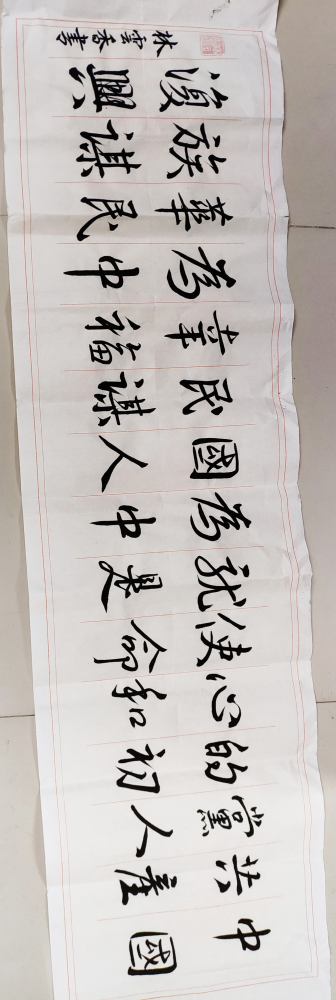 中國
共產
黨人
的初
心和
使命
就是
為中
國人
民謀
幸福
為中
華民
族謀
復興
林雲香書